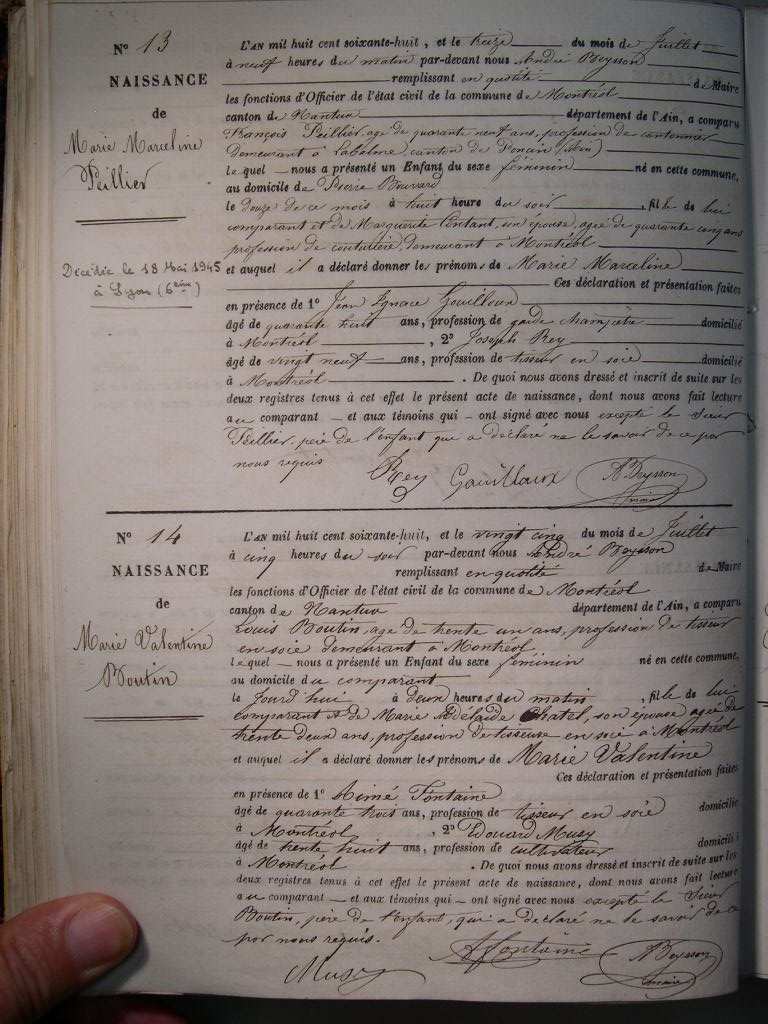 N° 13
NAISSANCE
de
Marie Marceline
Peillier
Décédée le 18 Mai 1945
à Lyon (6ème)
L'AN mil huit cent soixante-huit, et le treize du mois de Juillet
à neuf heures du matin par-devant nous André Beysson
remplissant en qualité de Maire
les fonctions d'Officier de l'état civil de la commune de Montréal
canton de Nantua département de l'Ain, a comparu
François Peillier, agé de quarante neuf ans, profession de cantonnier
demeurant à Labalme (canton de Poncin) (Ain)
lequel — nous a présenté un Enfant du sexe féminin né en cette commune,
au domicile de Bouvard
le douze de ce mois à huit heure du soir, fille de lui
comparant et de Marguerite Contant, son épouse, agée de quarante cinq ans
profession de couturière, demeurant à Montréal
et auquel il a déclaré donner les prénoms de Marie Marceline
Ces déclaration et présentation faites
en présence de 1° Jean Ignace Gouilloux
âgé de quarante huit ans, profession de garde champêtre domicilié
à Montréal, 2° Joseph Rey
âgé de vingt neuf ans, profession de tisseur en soie domicilié
à Montréal. De quoi nous avons dressé et inscrit de suite sur les
deux registres tenus à cet effet le présent acte de naissance, dont nous avons fait lecture
au comparant — et aux témoins qui — ont signé avec nous excepté le Sieur
Peillier, père de l'enfant qui a déclaré ne le savoir de ce par
nous requis
Rey Gouilloux A Beysson
maire
N° 14
NAISSANCE
de
Marie Valentine
Boutin
L'AN mil huit cent soixante-huit, et le vingt cinq du mois de Juillet
à cinq heures du soir par-devant nous André Beysson
remplissant en qualité de Maire
les fonctions d'Officier de l'état civil de la commune de Montréal
canton de Nantua département de l'Ain, a comparu
Louis Boutin, age de trente un ans, profession de tisseur
en soie demeurant à Montréal
lequel — nous a présenté un Enfant du sexe féminin né en cette commune,
au domicile du comparant
le Jourd'hui à deux heures du matin, fille de lui
comparant et de Marie Adélaïde Chatel, son épouse agée de
trente deux ans, profession de tisseuse en soie à Montréal
et auquel il a déclaré donner les prénoms de Marie Valentine
Ces déclaration et présentation faites
en présence de 1° Aimé Fontaine
âgé de quarante trois ans, profession de tisseur en soie domicilié
à Montréal, 2° Edouard Musy
âgé de trente huit ans, profession de cultivateur domicilié
à Montréal. De quoi nous avons dressé et inscrit de suite sur les
deux registres tenus à cet effet le présent acte de naissance, dont nous avons fait lecture
au comparant — et aux témoins qui — ont signé avec nous excepté le Sieur
Boutin, père de l'enfant, qui a déclaré ne le savoir de ce
par nous requis.
Musy AFontaine A Beysson
maire